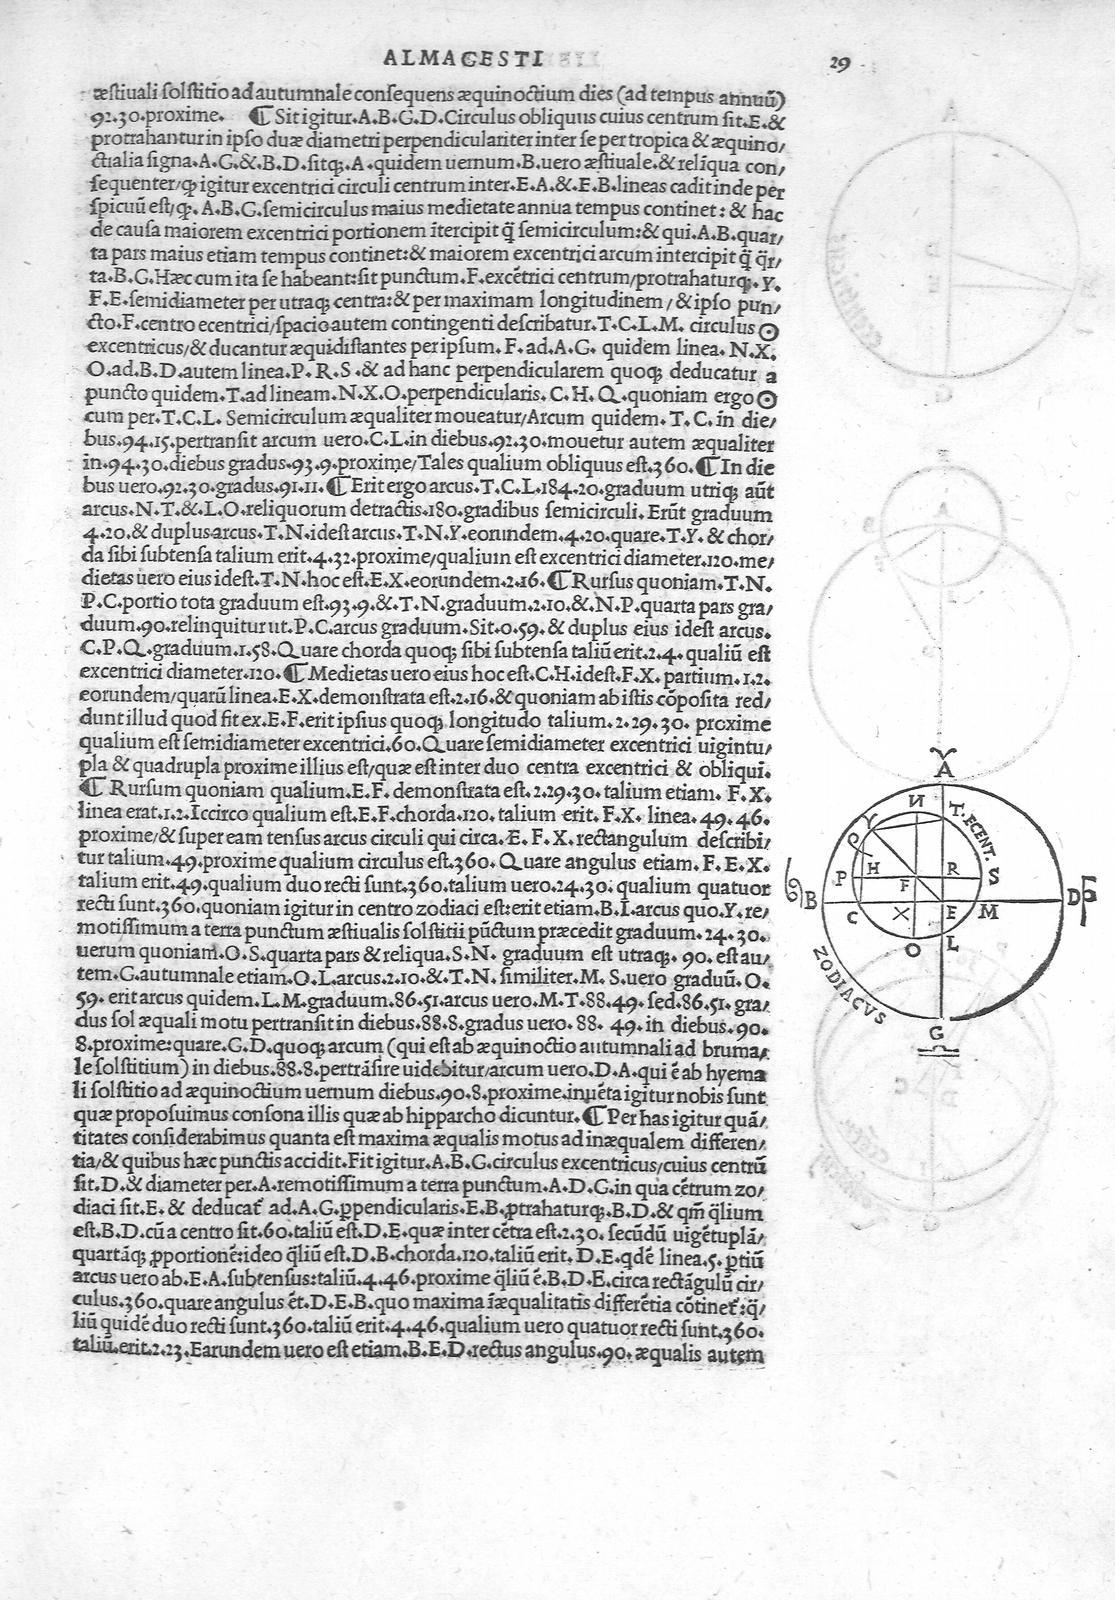 ALMAGESTI 29
æstiuali solstitio ad autumnale consequens æquinoctium dies (ad tempus annuū)
92.30.proxime. ¶ Sit igitur.A.B.G.D.Circulus obliquus cuius centrum sit.E.&
protrahantur in ipso duæ diametri perpendiculariter inter se per tropica & æquino/
ctialia signa.A.G.& B.D.sitq́;.A.quidem uernum.B.uero æstiuale.& reliqua con/
sequenter/q igitur excentrici circuli centrum inter.E.A.&.E.B.lineas cadit inde per
spicuū est/q. A.B.G.semicirculus maius medietate annua tempus continet: & hac
de causa maiorem excentrici portionem ītercipit q̄ semicirculum:& qui.A.B.quar/
ta pars maius etiam tempus continet:& maiorem excentrici arcum intercipit q̄ q̄r/
ta.B.G.Hæc cum ita se habeant:sit punctum.F.excētrici centrum/protrahaturq;.Y.
F.E.semidiameter per utraq; centra:& per maximam longitudinem/& ipso pun/
cto.F.centro ecentrici/spacio autem contingenti describatur.T.C.L.M. circulus ☉
excentricus/& ducantur æquidistantes per ipsum. F. ad.A.G. quidem linea. N.X.
O.ad.B.D.autem linea.P.R.S.& ad hanc perpendicularem quoq; deducatur a
puncto quidem.T.ad lineam.N.X.O.perpendicularis.C.H.Q.quoniam ergo ☉
cum per.T.C.L. Semicirculum æqualiter moueatur/Arcum quidem.T.C.in die/
bus.94.15.pertransit arcum uero.C.L.in diebus.92.30.mouetur autem æqualiter
in.94.30.diebus gradus.93.9.proxime/Tales qualium obliquus est.360.¶ In die
bus uero.92.30.gradus.91.11.¶ Erit ergo arcus.T.C.L.184.20.graduum utriq; aūt
arcus.N.T.& L.O.reliquorum detractis.180.gradibus semicirculi.Erūt graduum
4.20.& duplus arcus.T.N.idest arcus.T.N.Y.eorundem.4.20.quare.T.Y.& chor/
da sibi subtensa talium erit.4.32.proxime/qualium est excentrici diameter.120.me/
dietas uero eius idest.T.N.hoc est.E.X.eorundem.2.16.¶ Rursus quoniam.T.N.
P.C.portio tota graduum est.93.9.&.T.N.graduum.2.10.&.N.P.quarta pars gra/
duum.90.relinquitur ut.P.C.arcus graduum.Sit.0.59.& duplus eius idest arcus.
C.P.Q.graduum.1.58.Quare chorda quoq; sibi subtensa taliū erit.2.4.qualiū est
excentrici diameter.120.¶ Medietas uero eius hoc est.C.H.idest.F.X.partium.1.2.
eorundem/quarū linea.E.X.demonstrata est.2.16.& quoniam ab istis cōposita red/
dunt illud quod fit ex.E.F.erit ipsius quoq; longitudo talium.2.29.30. proxime
qualium est semidiameter excentrici.60.Quare semidiameter excentrici uigintu/
pla & quadrupla proxime illius est/quæ est inter duo centra excentrici & obliqui.
¶ Rursum quoniam qualium.E.F.demonstrata est.2.29.30.talium etiam. F.X.
linea erat.1.2.Iccirco qualium est.E.F.chorda.120. talium erit. F.X. linea.49.46.
proxime/& super eam tensus arcus circuli qui circa.E.F.X.rectangulum describi/
tur talium.49.proxime qualium circulus est.360.Quare angulus etiam.F.E.X.
talium erit.49.qualium duo recti sunt.360.talium uero.24.30.qualium quatuor
recti sunt.360.quoniam igitur in centro zodiaci est:erit etiam.B.I.arcus quo.Y.re/
motissimum a terra punctum æstiualis solstitii pūctum præcedit graduum.24.30.
uerum quoniam.O.S.quarta pars & reliqua.S.N. graduum est utraq;. 90. est au/
tem.G.autumnale etiam.O.L.arcus.2.10.&.T.N. similiter.M. S.uero graduū.O.
59. erit arcus quidem.L.M.graduum.86.51.arcus uero.M.T.88.49. sed.86.51. gra/
dus sol æquali motu pertransit in diebus.88.8.gradus uero. 88. 49.in diebus.90.
8.proxime:quare.G.D.quoq; arcum (qui est ab æquinoctio autumnali ad bruma/
le solstitium) in diebus.88.8.pertrāsire uidebitur/arcum uero.D.A.qui ē ab hyema
li solstitio ad æquinoctium uernum diebus.90.8.proxime.inuēta igitur nobis sunt
quæ proposuimus consona illis quæ ab hipparcho dicuntur.¶ Per has igitur quā/
titates considerabimus quanta est maxima æqualis motus ad inæqualem differen/
tia/& quibus hæc punctis accidit.Fit igitur.A.B.G.circulus excentricus/cuius centrū
sit.D.& diameter per.A.remotissimum a terra punctum.A.D.G.in qua cētrum zo/
diaci sit.E.& deducat̄ ad.A.G.ꝑpendicularis.E.B.ꝓtrahaturq;.B.D.& qm̄ q̄lium
est.B.D.cū a centro sit.60.taliū est.D.E.quæ inter cētra est.2.30.secūdū uigētuplā/
quartāq; ꝓportionē:ideo q̄liū est.D.B.chorda.120.taliū erit. D.E.qdē linea.5.ꝑtiū
arcus uero ab.E.A.subtensus:taliū.4.46.proxime q̄liū ē.B.D.E.circa rectāgulū cir/
culus.360.quare angulus ēt.D.E.B.quo maxima īæqualitatis differētia cōtinet̄:q̄/
liū quidē duo recti sunt.360.taliū erit.4.46.qualium uero quatuor recti sunt.360.
taliū.erit.2.23.Earundem uero est etiam.B.E.D.rectus angulus.90.æqualis autem
A
N T. ECENT.
Y
Q
P H R S
F
B D
C X E M
O L
ZODIACVS
G